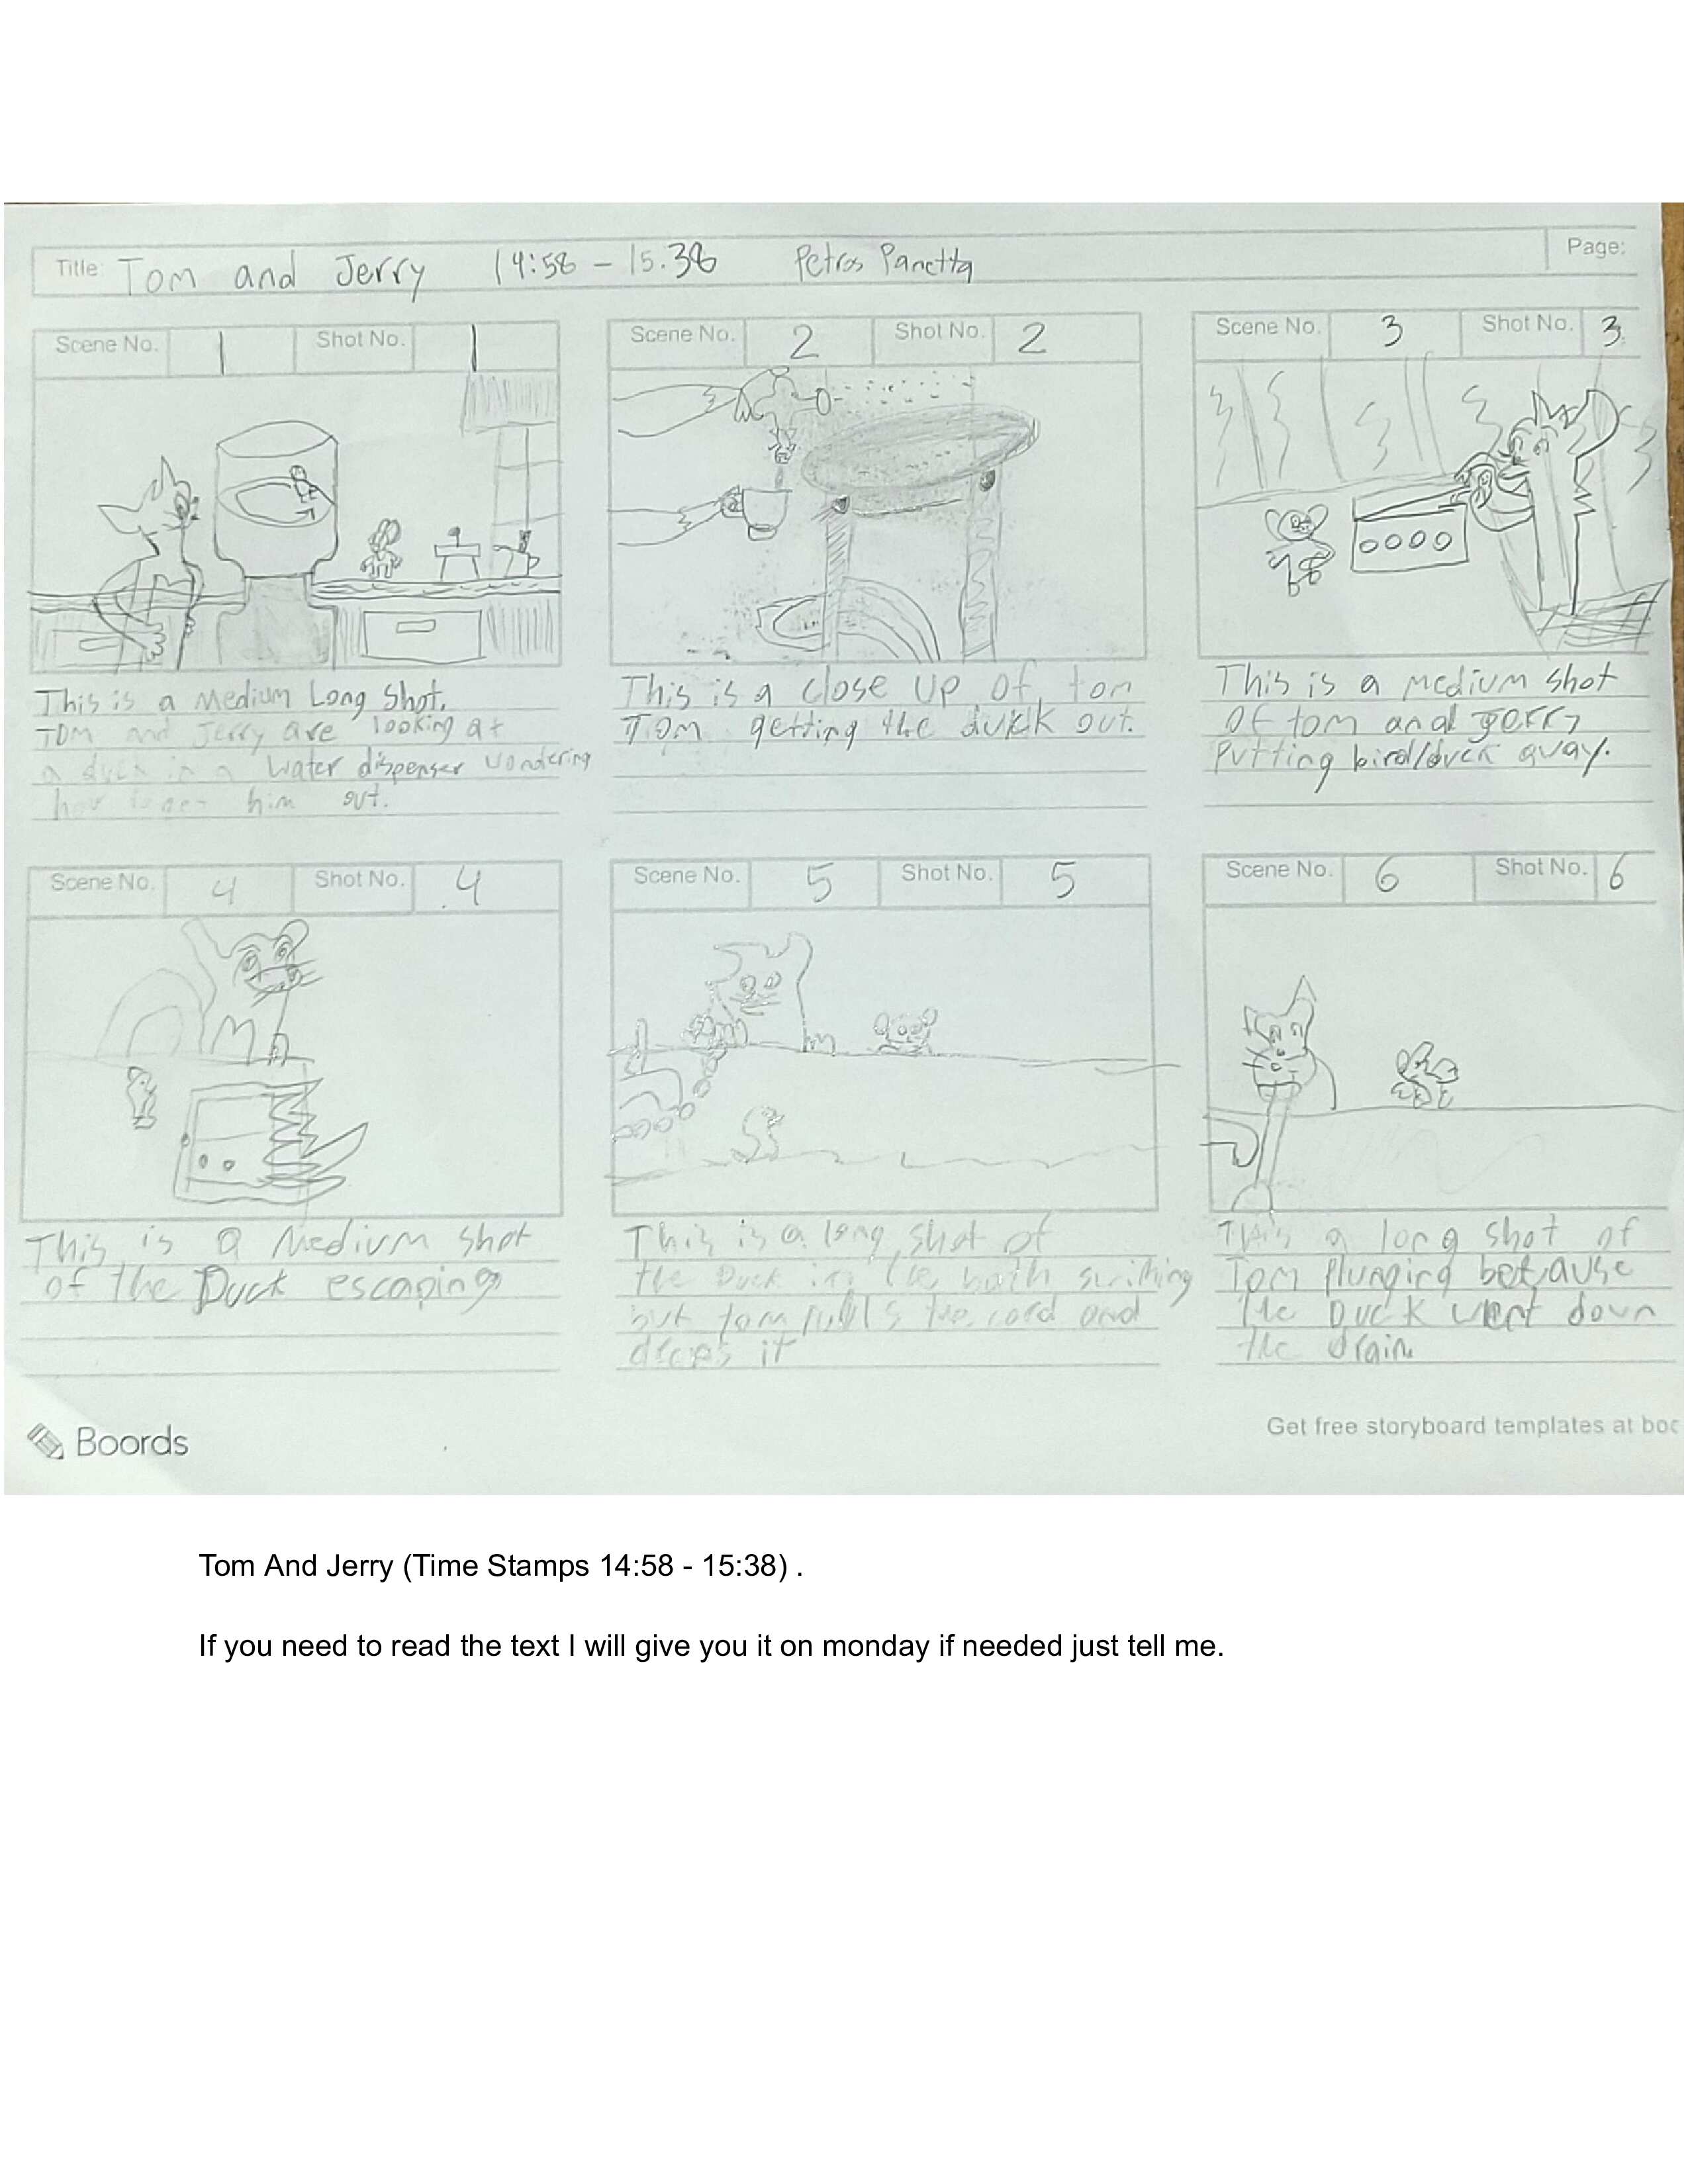 Title: Tom and Jerry 14:58 - 15.38 Petros Panetta Page:
Scene No. 1 Shot No. 1
This is a Medium Long Shot.
Tom and Jerry are looking at
a duck in a water dispenser wondering
how to get him out.
Scene No. 2 Shot No. 2
This is a close up of tom
Tom getting the duck out.
Scene No. 3 Shot No. 3
This is a medium shot
of tom and Jerry
Putting bird/duck away.
Scene No. 4 Shot No. 4
This is a Medium shot
of the Duck escaping
Scene No. 5 Shot No. 5
This is a long shot of
the Duck in the bath
but tom pulls the cord and
drops it
Scene No. 6 Shot No. 6
This a long shot of
Tom plunging because
the Duck went down
the drain
Boords
Get free storyboard templates at boo
Tom And Jerry (Time Stamps 14:58 - 15:38) .
If you need to read the text I will give you it on monday if needed just tell me.